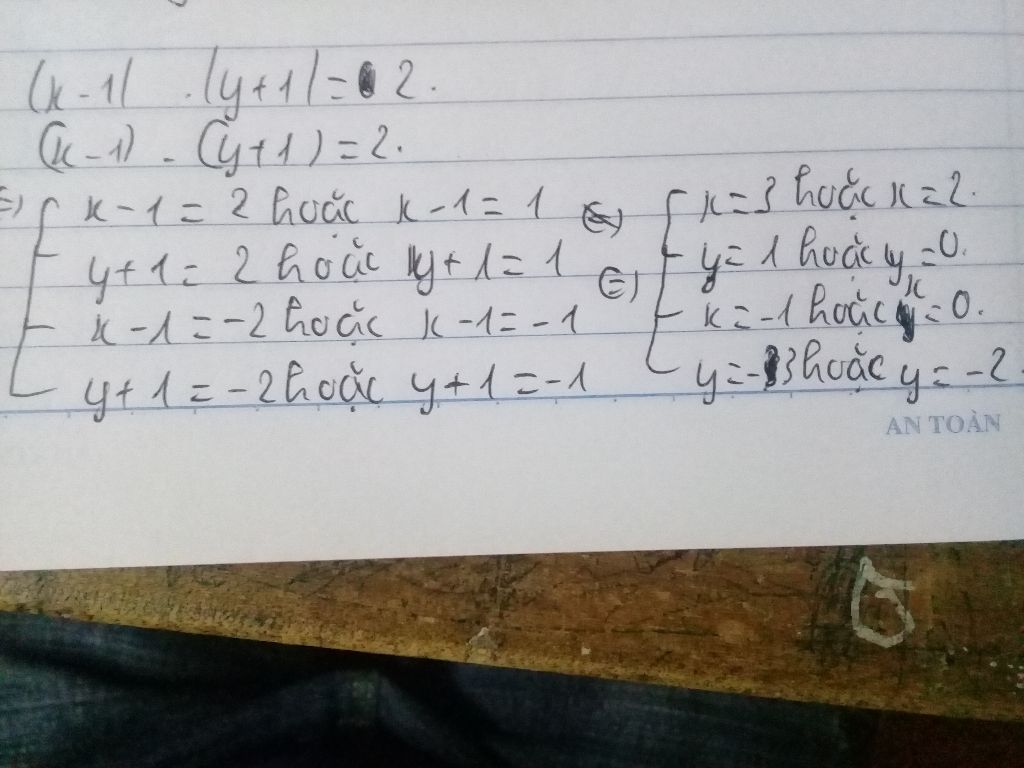 (x-1) . (y+1) = 2.
(x-1) . (y+1) = 2.
⇔ x-1 = 2 hoặc x-1 = 1 ⇔ x=3 hoặc x=2.
y+1 = 2 hoặc y+1 = 1 y=1 hoặc y=0.
x-1 = -2 hoặc x-1 = -1 x=-1 hoặc x=0.
y+1 = -2 hoặc y+1 = -1 y=-3 hoặc y=-2
AN TOÀN